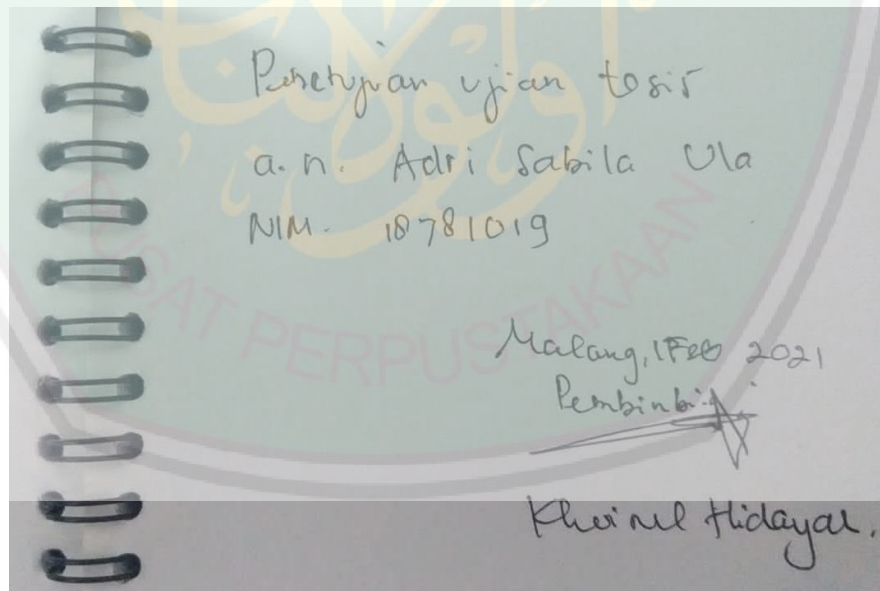 Persetujuan ujian tesis
a.n. Adri Sabila Ula
NIM. 18781019
Malang, 1 Feb 2021
Pembimbing
Khoirul Hidayah.
PUSAT PERPUSTAKAAN